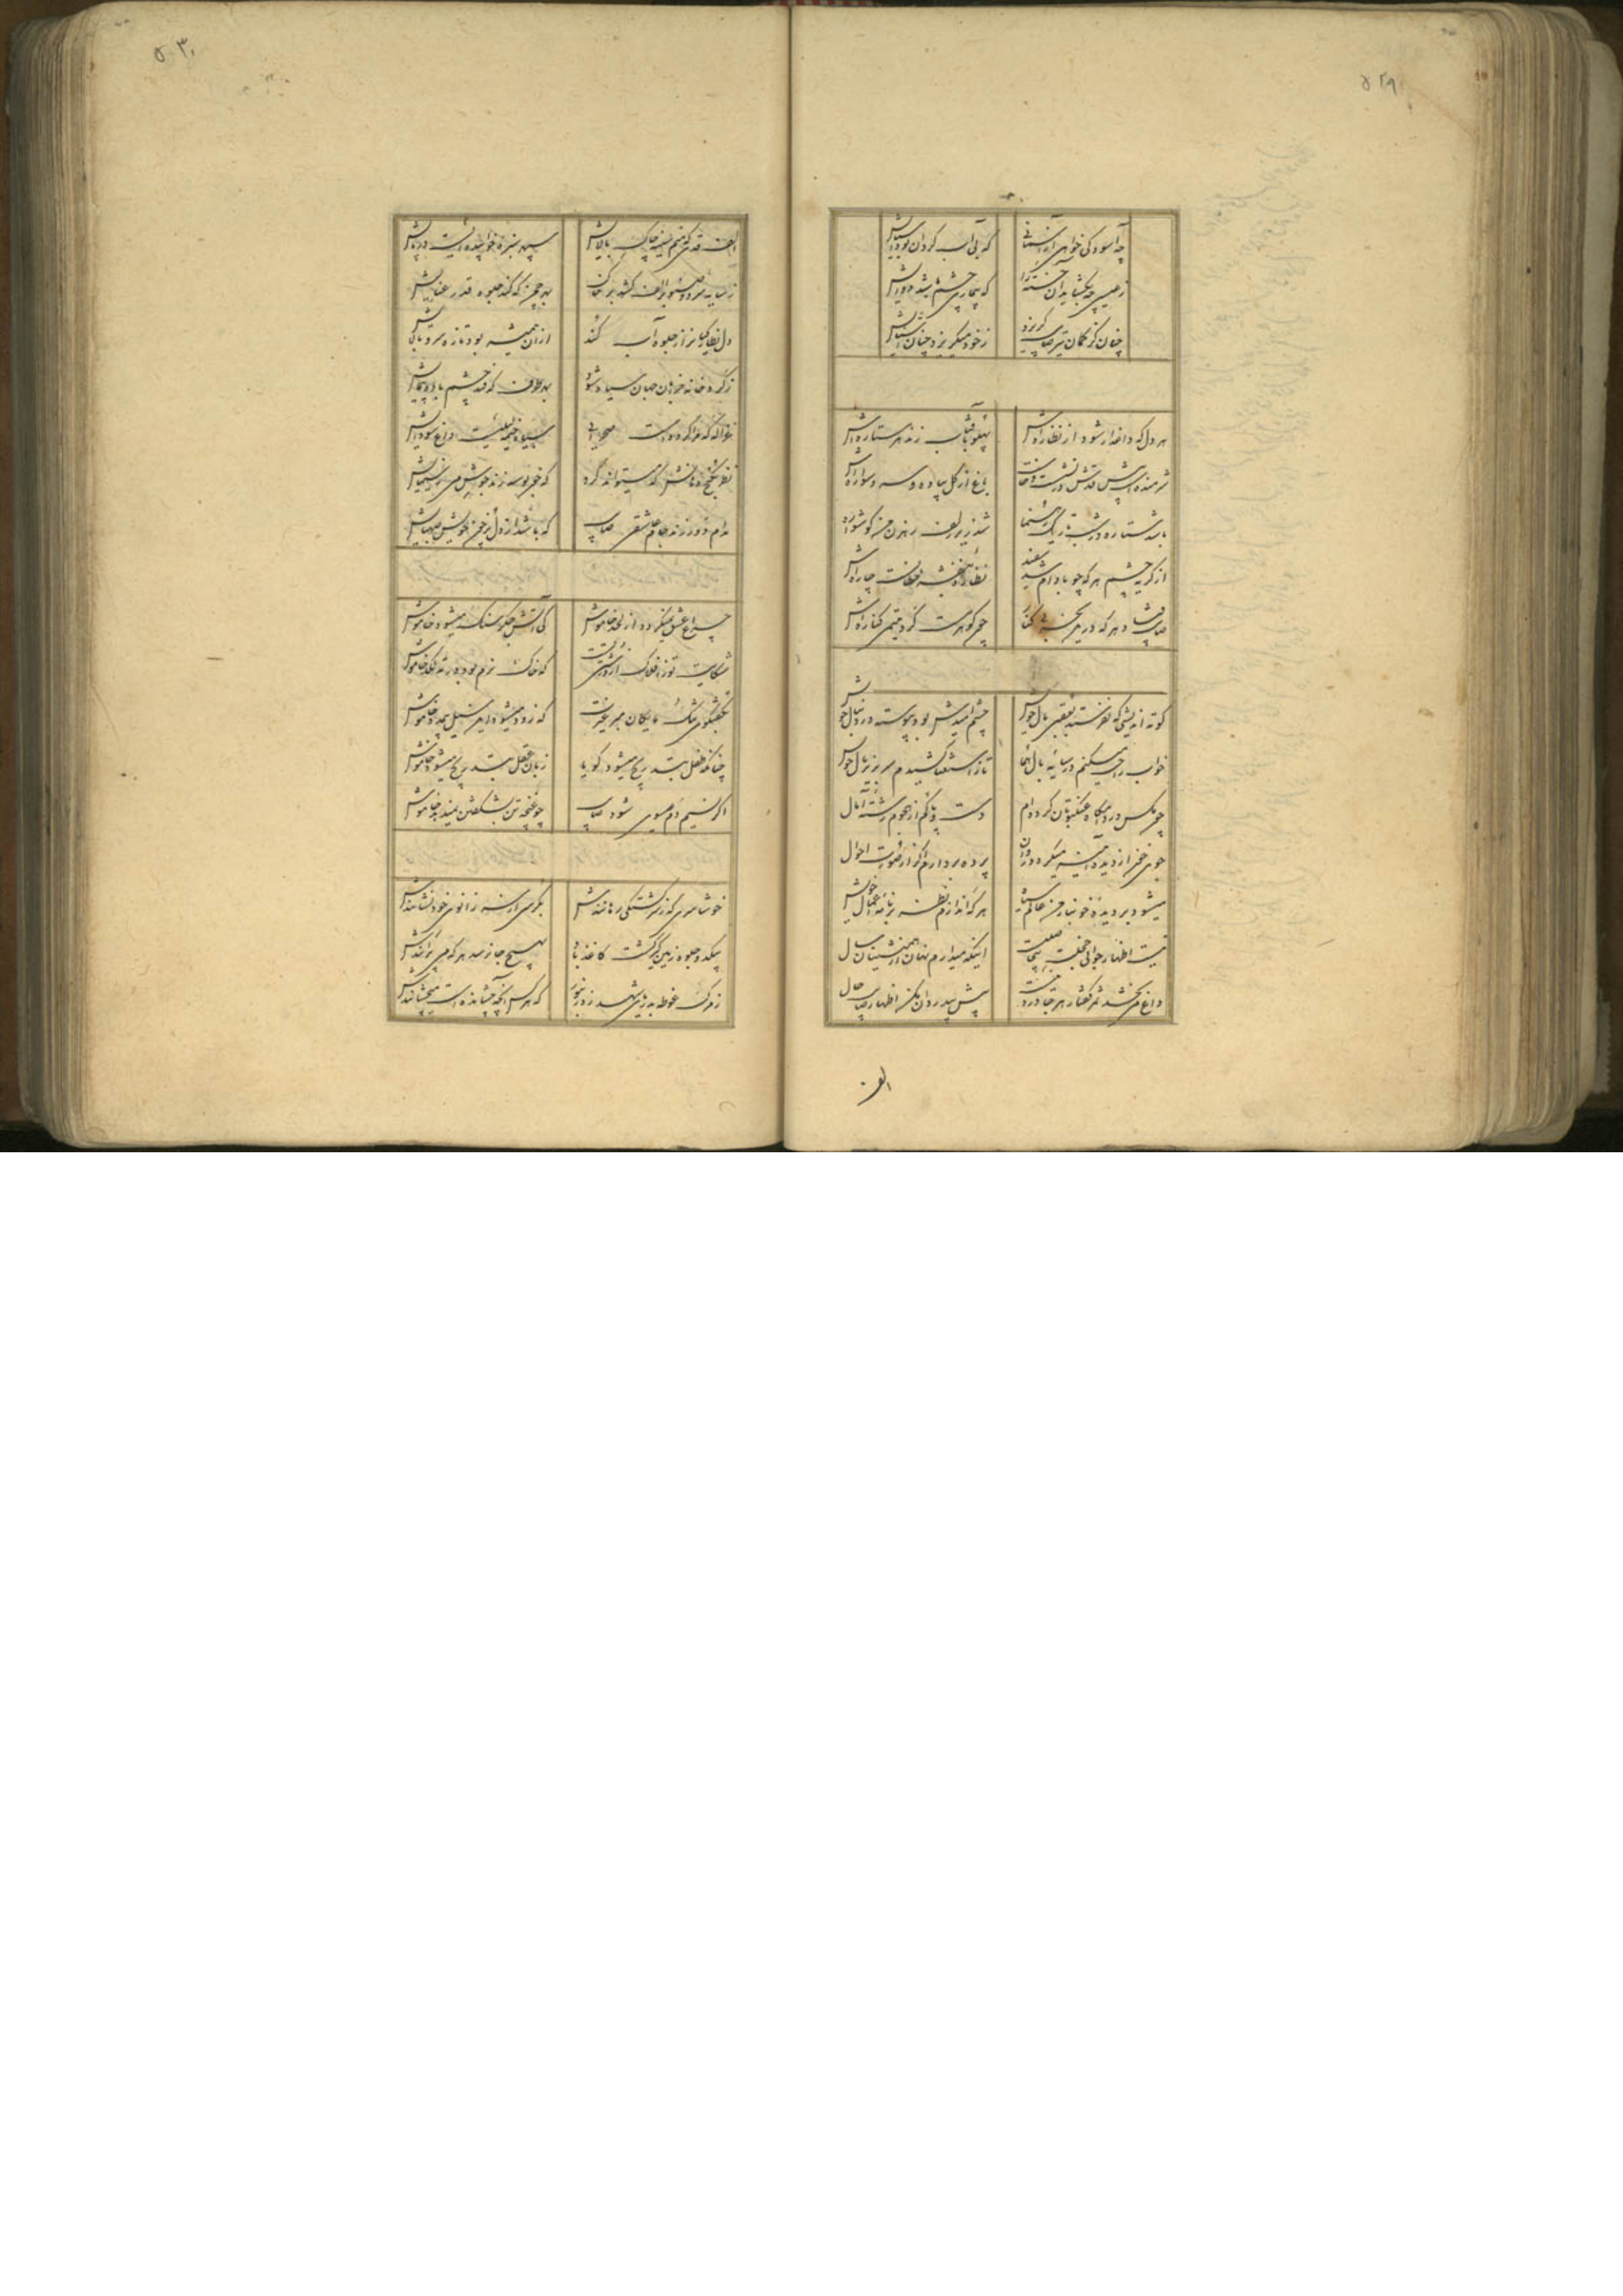 ۵۲۹
چه آسودگی خواهی از آسمانی
که بی آب گردان بود آسیایش
ز عیسی چه بگشاید آن خسته را
که بیماری چشم شد دوایش
چنان کز کمان تیر صایب گریزد
ز خود میگریزد چنان آشنایش
هر دل که داغدار شود از نظاره اش
پهلو بآفتاب زند هر ستاره اش
شرمنده اش قدش در نشست و خاست
باغ از گل پیاده و سرو سواره اش
باشد ستاره در شب تاریک رهنما
شد زیر زلف رهزن من گوشواره اش
از گریه چشم هر که چو بادام شد سفید
نظاره بنفشه خطانست چاره اش
صایب فتاد هر که در بحر بی کنار
چون گوهرست گرد یتیمی کناره اش
کوته اندیشی که نفرستد بعقبی مال خویش
چشم امیدش بود پیوسته در دنبال خویش
خواب راحت میکنم در سایه بال هما
تا ز استغنا کشیدم سر بزیر بال خویش
چون مگس در دامگاه عنکبوتان کرده دام
دست و پا گم از هجوم رشته آمال
جوهر خنجر از دیده آیینه میگردد روان
پرده بردارم اگر از صورت احوال
میشود بر دیده خونبار من عالم سیاه
هر که اندازم نظر بر نامه اعمال خویش
نیست اظهار جوانی خجلت
اینکه میدارم نهان از همنشینان سال
داغ می بخشد ثمر گفتار هر جا درد نیست
پیش بیدردان مکن اظهار صایب حال
الف
۵۳۰
الف قدی که منم سینه چاک بالایش
سپهر سبزه خوابیده ایست در پایش
ز سایه سرو و صنوبر الف کشد بر خاک
بهر چمن که کند جلوه قد رعنایش
دل نظارگیان را ز جلوه آب کند
از آن همیشه بود تازه سرو بالایش
ز گرد خانه خوبان جهان سیاه شود
بهر طرف که فتد چشم باده پیمایش
غزاله که مرا کرده است صحرایی
سیاه خیمه لیلیست داغ سودایش
نظر بکنج دهانش که میتواند کرد
که خون بوسه زند جوش می ز سیمایش
مدام دور زند جام عاشقی صایب
که باشد از دل پر خون خویش صهبایش
چراغ عشق نمیگردد از لحد خاموش
کی آتش جگر سنگ میشود خاموش
شکایت تو ز افلاک از درشتی تست
که خاک نرم بود در ته لگد خاموش
بگفتگوی خنک مایگان مبر غیرت
که زود میشود این سیل بی مدد خاموش
چنانکه طفل بتدریج میشود گویا
زبان عقل بتدریج میشود خاموش
اگر نسیم دم عیسوی شود صایب
چو غنچه تن بشکفتن نمیدهد خاموش
خوشا سری که ز سرگشتگی رهانندش
بکرسی از سر زانوی خود نشانندش
بیک دو جلوه زمین گیر گشت کاغذ باد
بهیچ جا نرسد هر که می پرانندش
ز مرگ غوطه بدریای شهد زد زنبور
که هر کس آنچه چشانده است میچشانندش